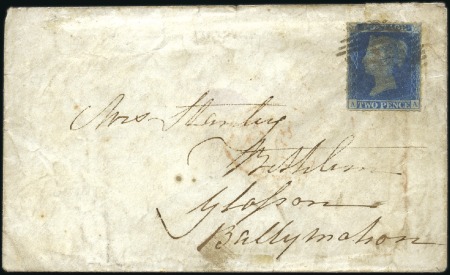 POSTAGE
A TWO PENCE A
Mrs Stanley
Bethlem
Glasson
Ballymahon